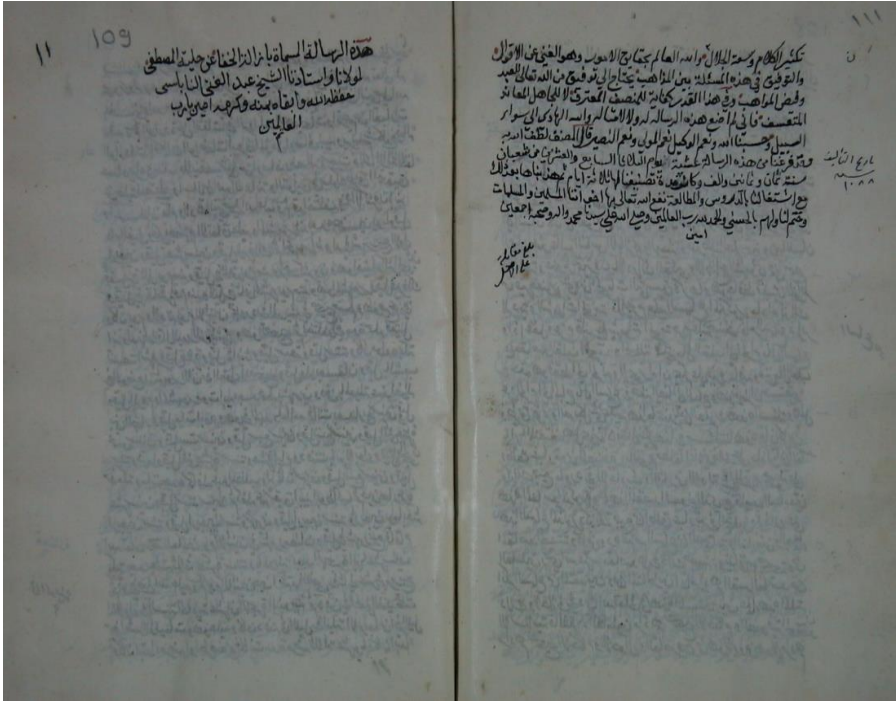 ١١١
تكثير الكلام وسعة الجلال والله العالم بحقايق الامور وهو الغني عن الاقوال
والتوفيق في هذه المسئلة بين المذاهب يحتاج الى توفيق من الله تعالى للعبد
وفي هذا القدر كفاية للمنصف المعترف لا للجاهل المعاند
المتعسف فاني لم اضع هذه الرسالة له ولا لامثاله والله الهادي الى سواء
السبيل وحسبنا الله ونعم الوكيل نعم المولى ونعم النصير قال المصنف لطف الله به
وقد فرغنا من هذه الرسالة عشية يوم الثلاثا السابع والعشرين من شعبان
سنة ثمان وثمانين والف وكانت مدة تصنيفها ثلاثة ايام
مع اشتغالنا بالدروس والمطالعة نفع الله تعالى بها اخواننا المسلمين والمسلمات
وختم لنا ولهم بالحسنى والحمد لله رب العالمين وصلى الله على سيدنا محمد واله وصحبه اجمعين
امين
تاريخ التاليف
سنة
١٠٨٨
بلغ مقابلة
على الاصل
١١
109
هذه الرسالة المسماة بازالة الخفا عن حلية المصطفى
لمولانا واستاذنا الشيخ عبد الغني النابلسي
حفظه الله وابقاه بمنه وكرمه امين يا رب
العالمين
م